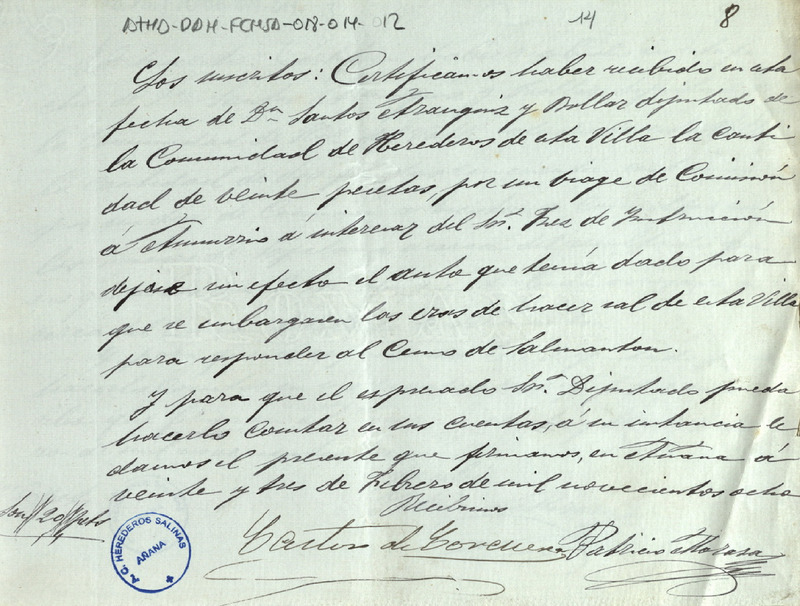 ATHA-DAH-FCHSA-018-014-012
14
8
Los suscritos: Certificamos haber recibido en esta
fecha de Dn Santos Aranguiz y Bollar diputado de
la Comunidad de Herederos de esta Villa la canti
dad de veinte pesetas, por un viage de Comisión
á Amurrio á interesar del Sr. Juez de Instrucción
dejase sin efecto el auto que tenía dado para
que se embargasen las eras de hacer sal de esta Villa
para responder al Censo de Salmanton.
Y para que el espresado Sr. Diputado pueda
hacerlo constar en sus cuentas, á su instancia le
damos el presente que firmamos, en Añana á
veinte y tres de Febrero de mil novecientos ocho
Recibimos
Son 20 Pts
Castor de Corcuera Patricio
C. HEREDEROS SALINAS
AÑANA